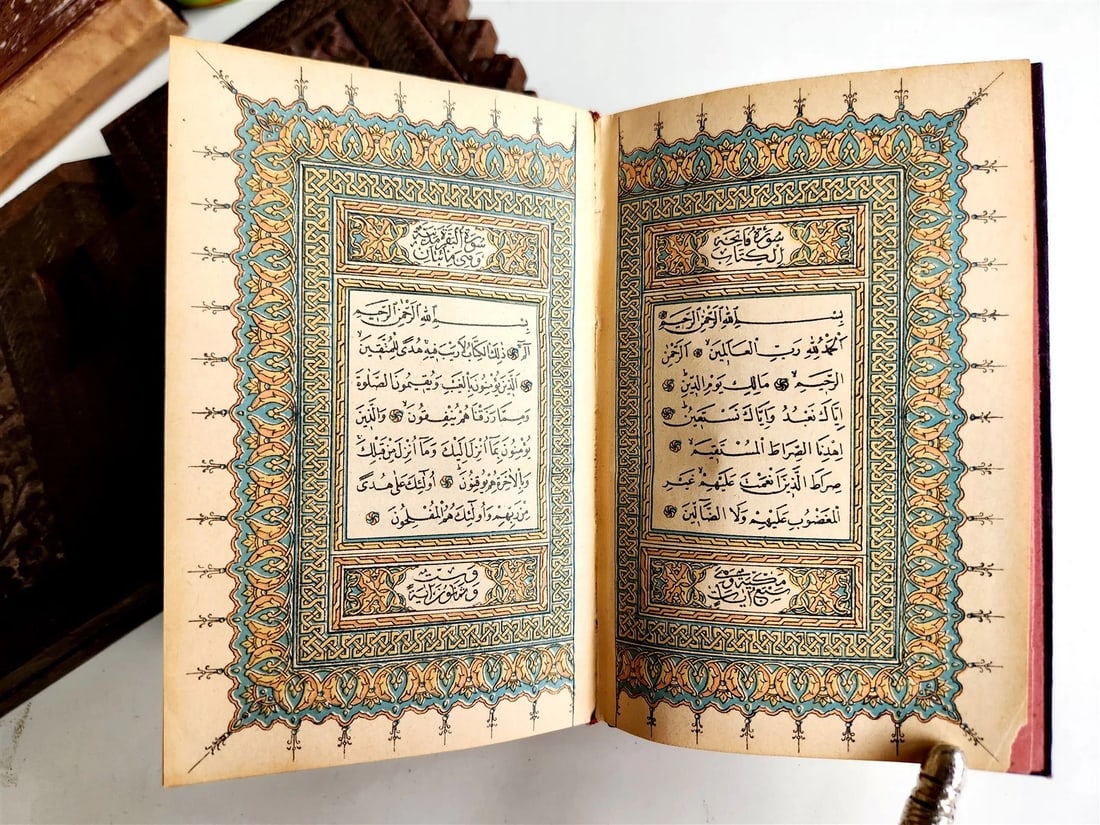 سورة فاتحة
الكتاب
بسم الله الرحمن الرحيم
الحمد لله رب العالمين الرحمن
الرحيم مالك يوم الدين
اياك نعبد واياك نستعين
اهدنا الصراط المستقيم
صراط الذين انعمت عليهم غير
المغضوب عليهم ولا الضالين
مكية وهي
سبع آيات
سورة البقرة مدنية
وهي مائتان
بسم الله الرحمن الرحيم
الم ذلك الكتاب لا ريب فيه هدى للمتقين
الذين يؤمنون بالغيب ويقيمون الصلوة
ومما رزقناهم ينفقون والذين
يؤمنون بما انزل اليك وما انزل من قبلك
وبالاخرة هم يوقنون اولئك على هدى
من ربهم واولئك هم المفلحون
وست
وثمانون آية